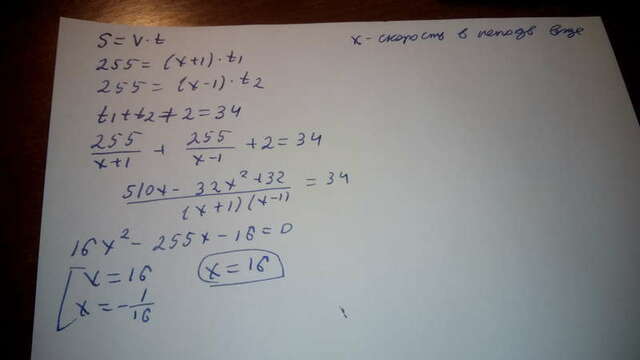 S = v · t
x - скорость в неподв воде
255 = (x+1) · t₁
255 = (x-1) · t₂
t₁ + t₂ + 2 = 34
255/(x+1) + 255/(x-1) + 2 = 34
510x - 32x² + 32 / (x+1)(x-1) = 34
16x² - 255x - 16 = 0
[ x = 16
x = -1/16
x = 16